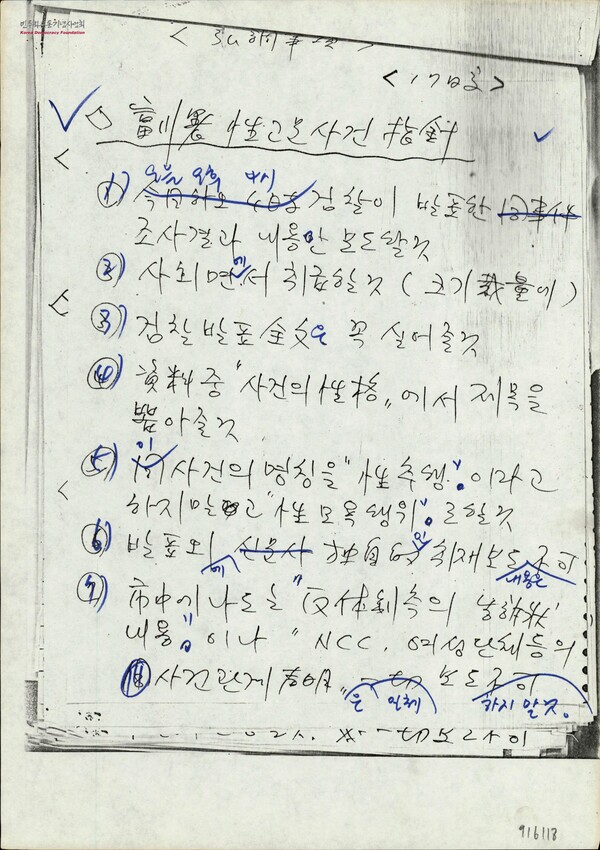 민주화운동기념사업회
Korea Democracy Foundation
<17日字>
富川署 性고문사건 指針
오늘 오후 시
1) 今日하오 4時 검찰이 발표한 同事件
조사결과 내용만 보도할것
에
2) 사회면에서 취급할것 (크기裁量에)
3) 검찰발표全文은 꼭 실어줄것
4) 資料중 "사건의 性格"에서 제목을
뽑아줄것
이
5) 同사건의 명칭을 "性추행"이라고
하지말고 "性모욕행위"로할것
인
6) 발표외 신문사 独自的 취재보도 不可
에 내용은
7) 市中에 나도는 "反体制측의
내용"이나 "NCC, 여성단체등의
사건관계 声明" 一切 보도不可
은 일체 하지 말것.
916118